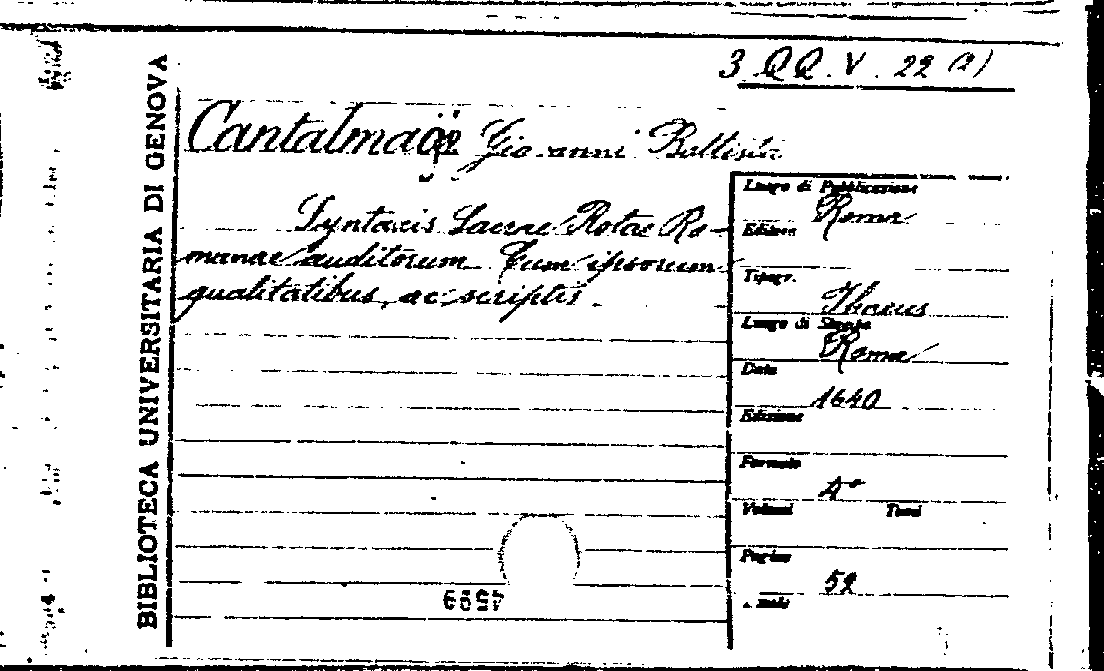 3 QQ. V. 22 (2)
BIBLIOTECA UNIVERSITARIA DI GENOVA
Giovanni Battista
Syntaxis Sacrae Rotae Ro-
manae auditorum Cum ipsorum
qualitatibus, ac scriptis.
Luogo di Pubblicazione
Roma
Editore
Tipogr.
Luogo di Stampa
Roma
Data
1640
Edizione
Formato
4°
Volumi Tomi
Pagine
52
4599